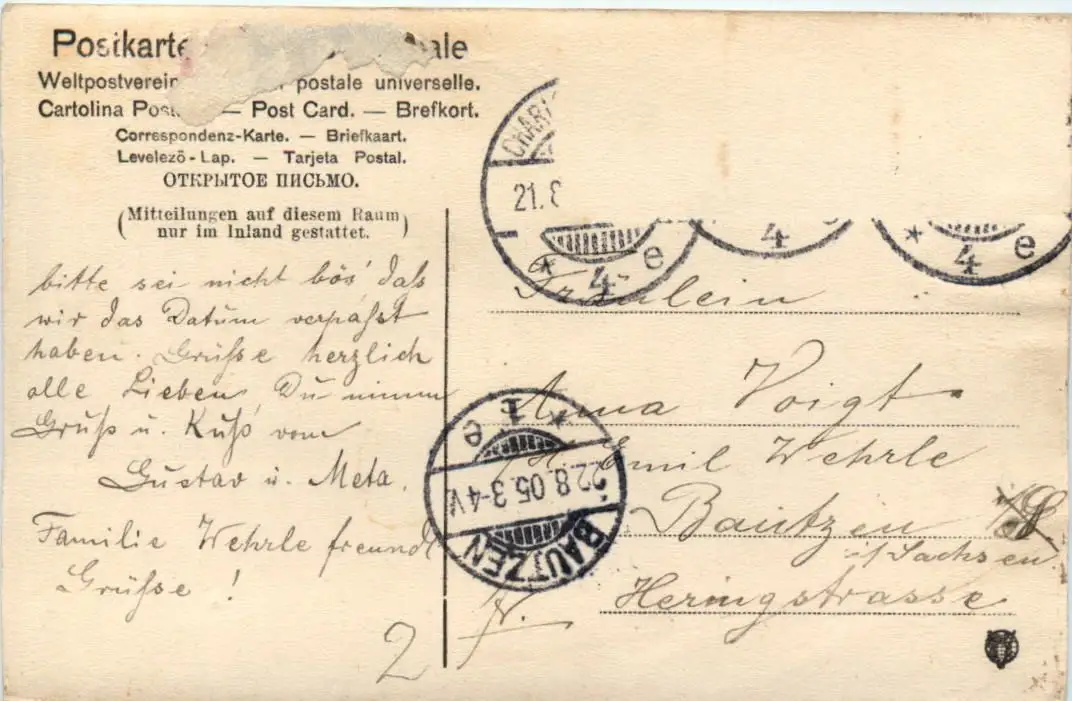 Postkarte ale
Weltpostverein postale universelle.
Cartolina Pos — Post Card. — Brefkort.
Correspondenz-Karte. — Briefkaart.
Levelező-Lap. — Tarjeta Postal.
ОТКРЫТОЕ ПИСЬМО.
(Mitteilungen auf diesem Raum
nur im Inland gestattet.)
bitte sei nicht bös' daß
wir das Datum verpaßt
haben. Grüße herzlich
alle Lieben Du nimm
Gruß u. Kuß vom
Gustav u. Meta.
Familie Wehrle freundl
Grüße!
2
CHAR
21. 8
* 4 e
4
* 4 e
Fräulein
Anna Voigt
Emil Wehrle
Bautzen
i/Sachsen
Heringstrasse
fr.
BAUTZEN
22.8.05.3-4V.
* 1 e